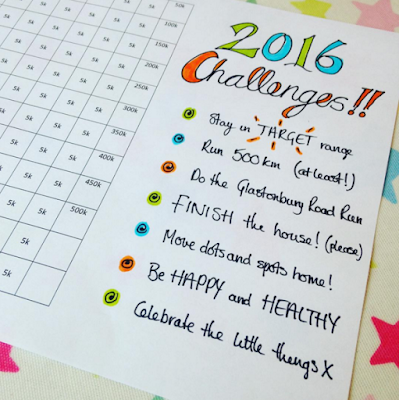 2016
Challenges!!
Stay in TARGET range
Run 500km (at least!)
Do the Glastonbury Road Run
FINISH the house! (please)
Move dots and spots home!
Be HAPPY and HEALTHY
Celebrate the little things X
5k 5k 5k 50k
5k 5k 5k 5k 100k
5k 5k 5k 5k 150k
5k 5k 5k 5k 200k
5k 5k 5k 5k 250k
5k 5k 5k 5k 300k
5k 5k 5k 5k 350k
5k 5k 5k 400k
5k 5k 5k 450k
5k 5k 5k 500k
5k 5k
5k